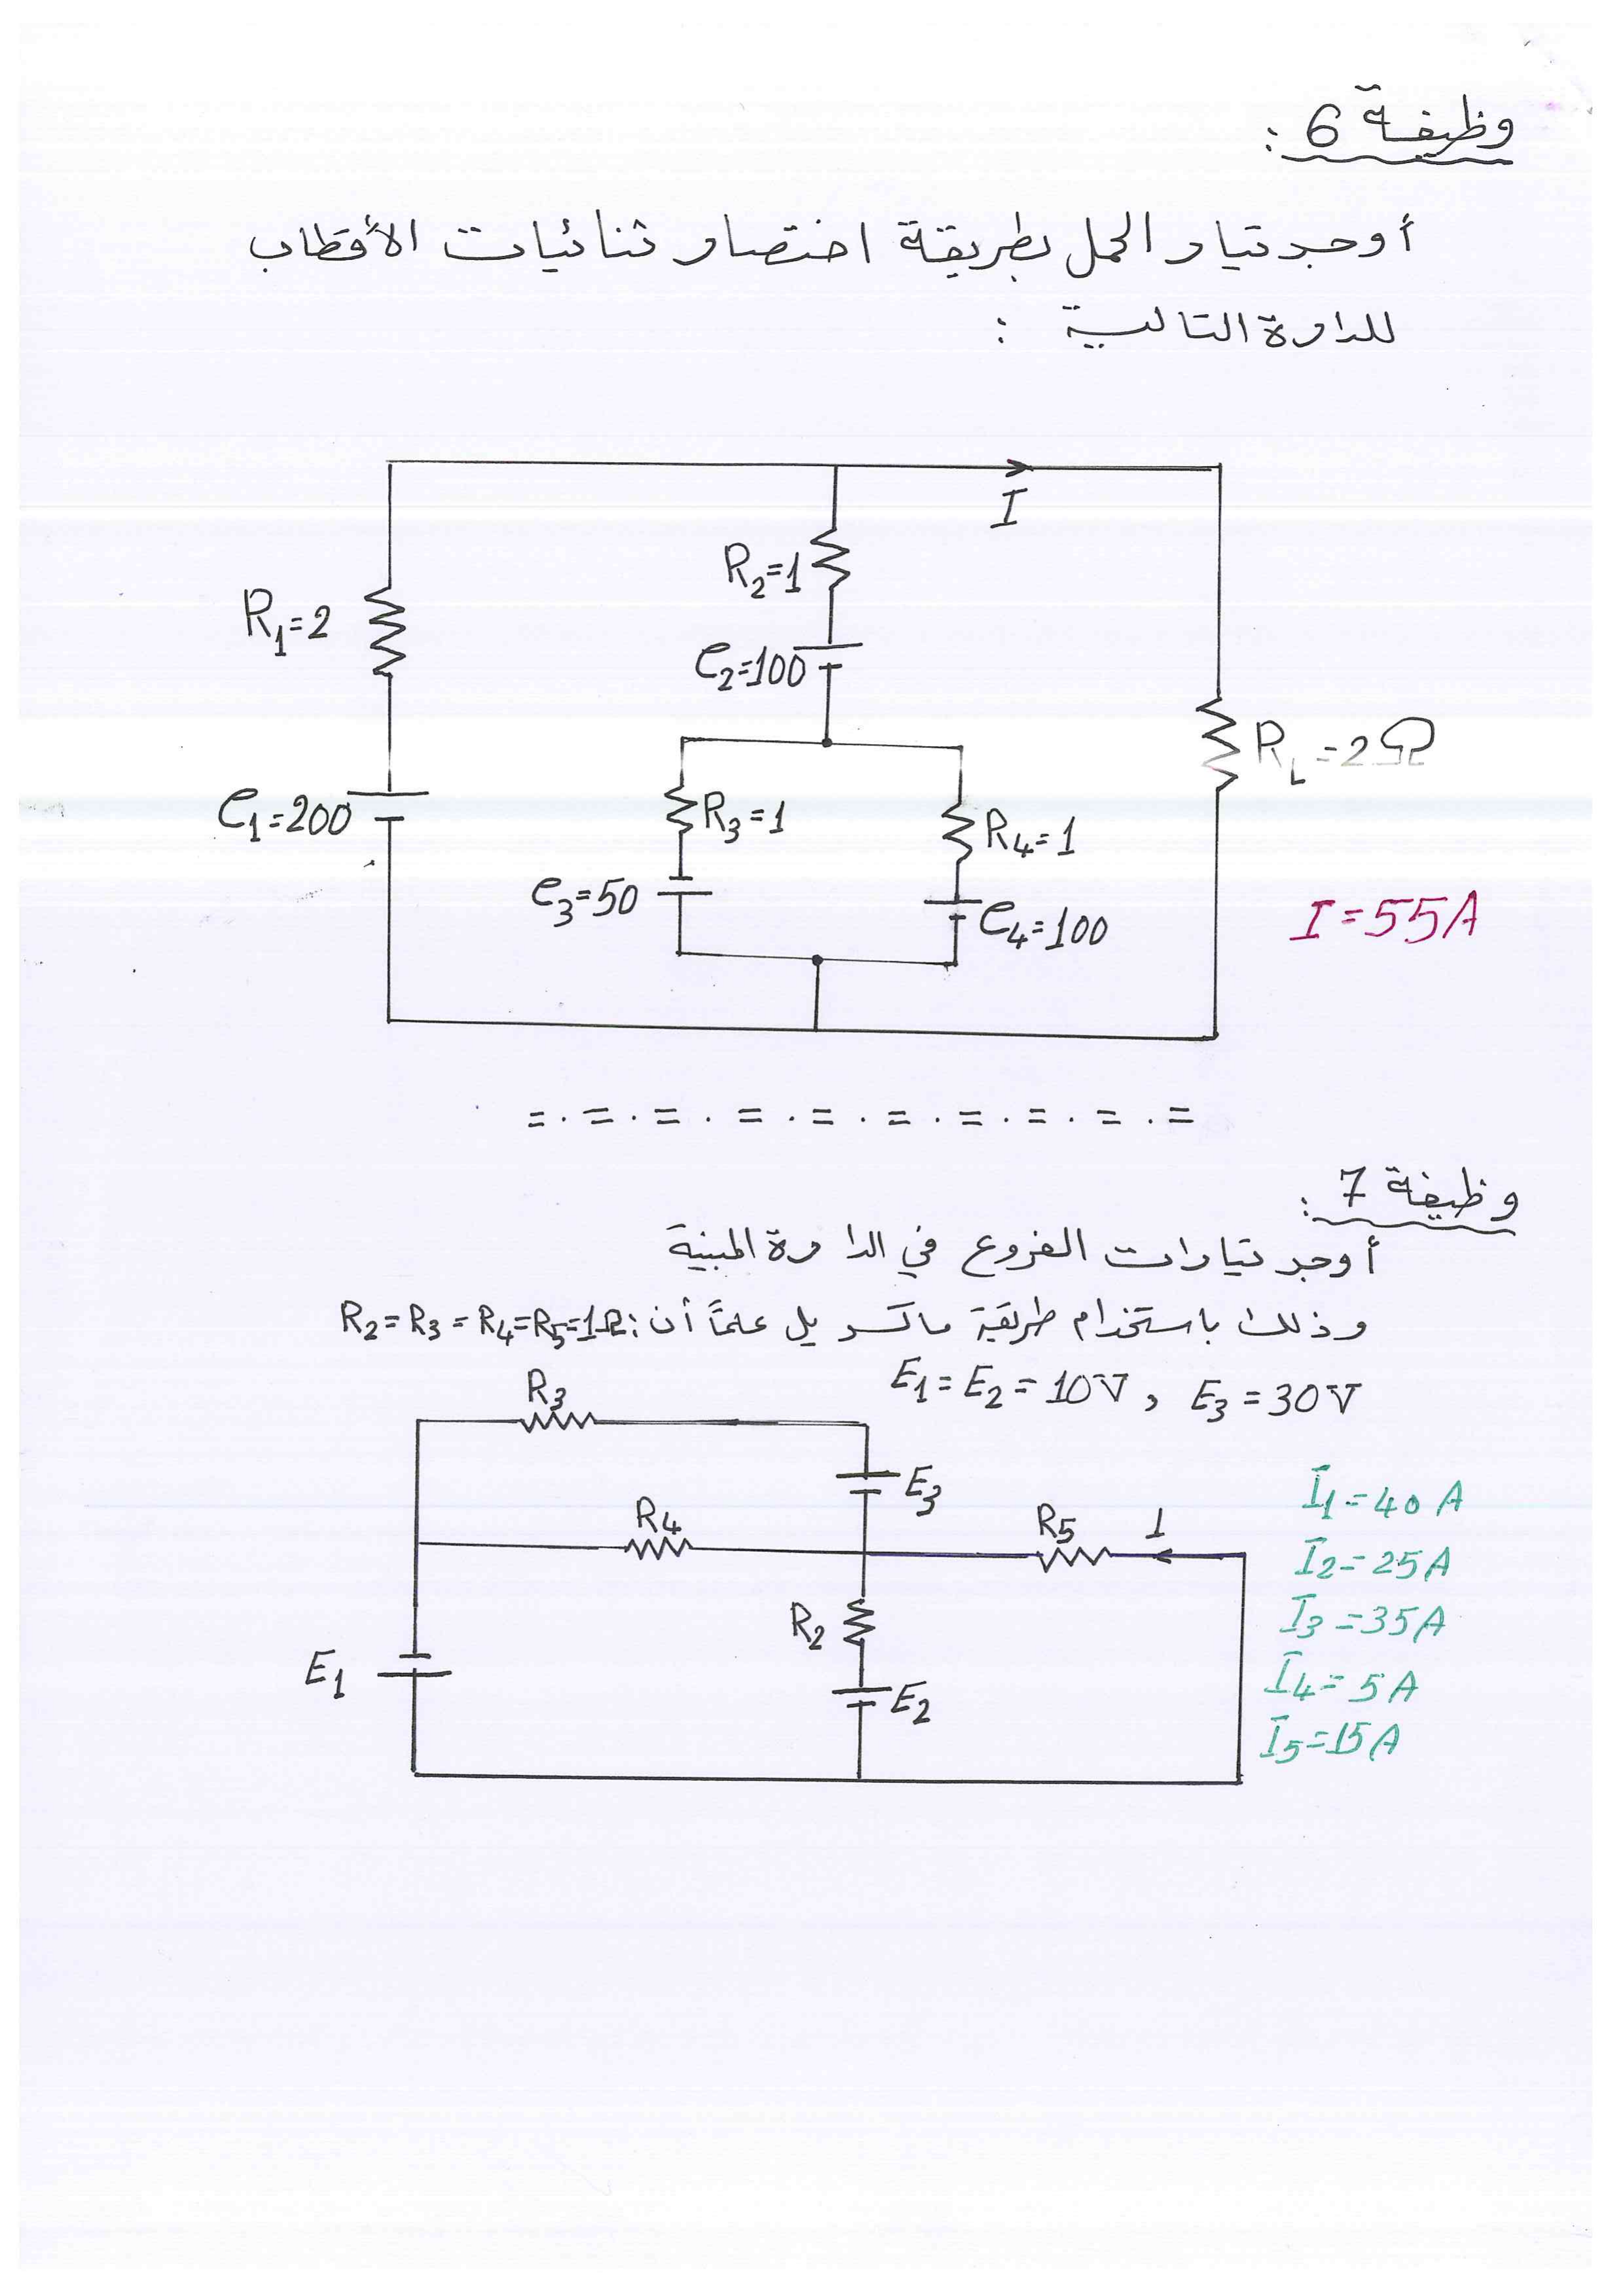 وظيفة 6 :
أوجد تيار الحمل بطريقة اختصار ثنائيات الأقطاب
للدارة التالية :
I
R2=1
R1=2
e2=100
RL=2Ω
R3=1
e1=200
R4=1
e3=50
e4=100
I=55A
=.=.=.=.=.=.=.=.=.=
وظيفة 7 :
أوجد تيارات الفروع في الدارة المبنية
وذلك باستخدام طريقة ماكسويل علماً أن: R2=R3=R4=R5=1Ω
E1=E2=10V , E3=30V
R3
E3
I1=40A
R4
R5
I
I2=25A
R2
I3=35A
E1
E2
I4=5A
I5=15A